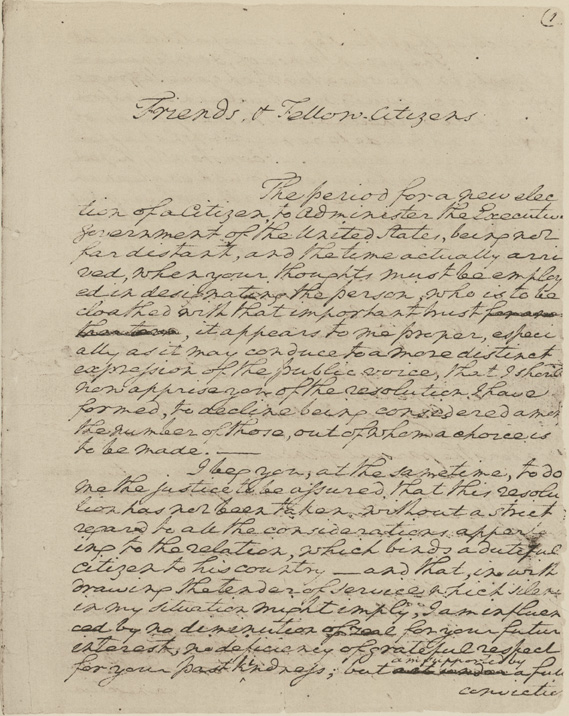 1
Friends, & Fellow-Citizens
The period for a new elec
tion of a Citizen, to Administer the Executive
government of the United States, being not
far distant, and the time actually arri
ved, when your thoughts must be employ
ed in designating the person, who is to be
cloathed with that important trust for an
, it appears to me proper, especi
ally as it may conduce to a more distinct
expression of the public voice, that I should
now apprise you of the resolution I have
formed, to decline being considered among
the number of those, out of whom a choice is
to be made. —
I beg you, at the same time, to do
me the justice to be assured, that this resolu
tion has not been taken, without a strict
regard to all the considerations appertain
ing to the relation, which binds a dutiful
citizen to his country — and that, in with
drawing the tender of service which silence
in my situation might imply, I am influen
ced by no diminution of zeal for your future
interest, no deficiency of grateful respect
for your past kindness; but am supported by act under a full
conviction